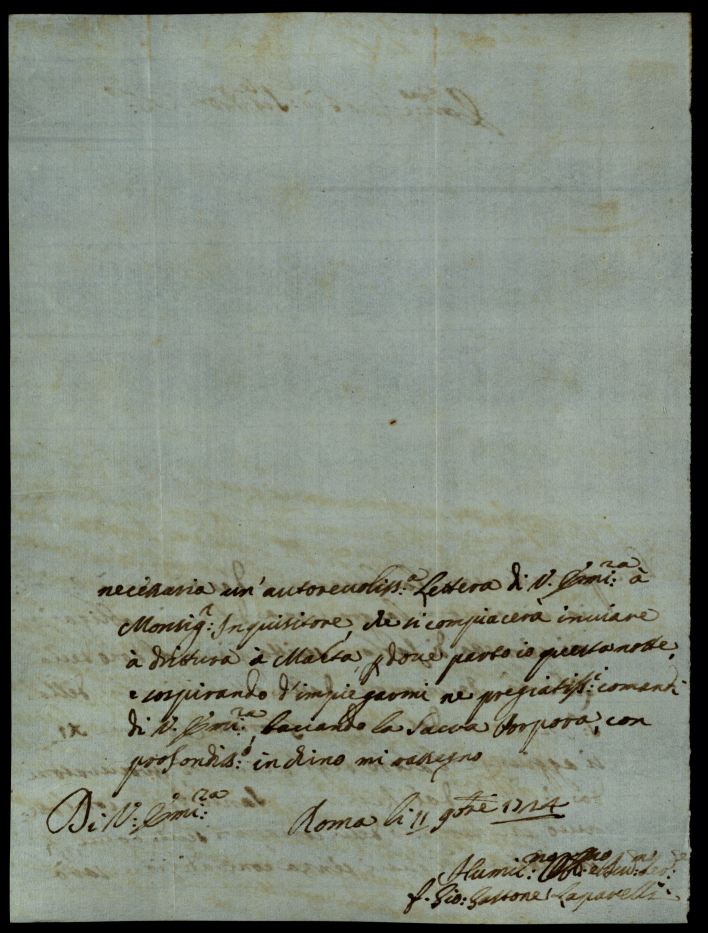 necessaria un'autorevoliss:ᵃ Lettera di V. Emi:ᶻᵃ à
Monsigʳ: Inquisitore, che si compiacerà inviare
à drittura à Malta, p dove parto io questa notte,
e sospirando d'impiegarmi ne pregiatiss:ⁱ comandi
di V. Emi:ᶻᵃ, baciando la Sacra Porpora, con
profondiss:ᵒ inchino mi rassegno
Di V: Emi:ᶻᵃ Roma li 11 9bre 1714
Humil:ᵐᵒ
f. Gio: Gastone Laparelli